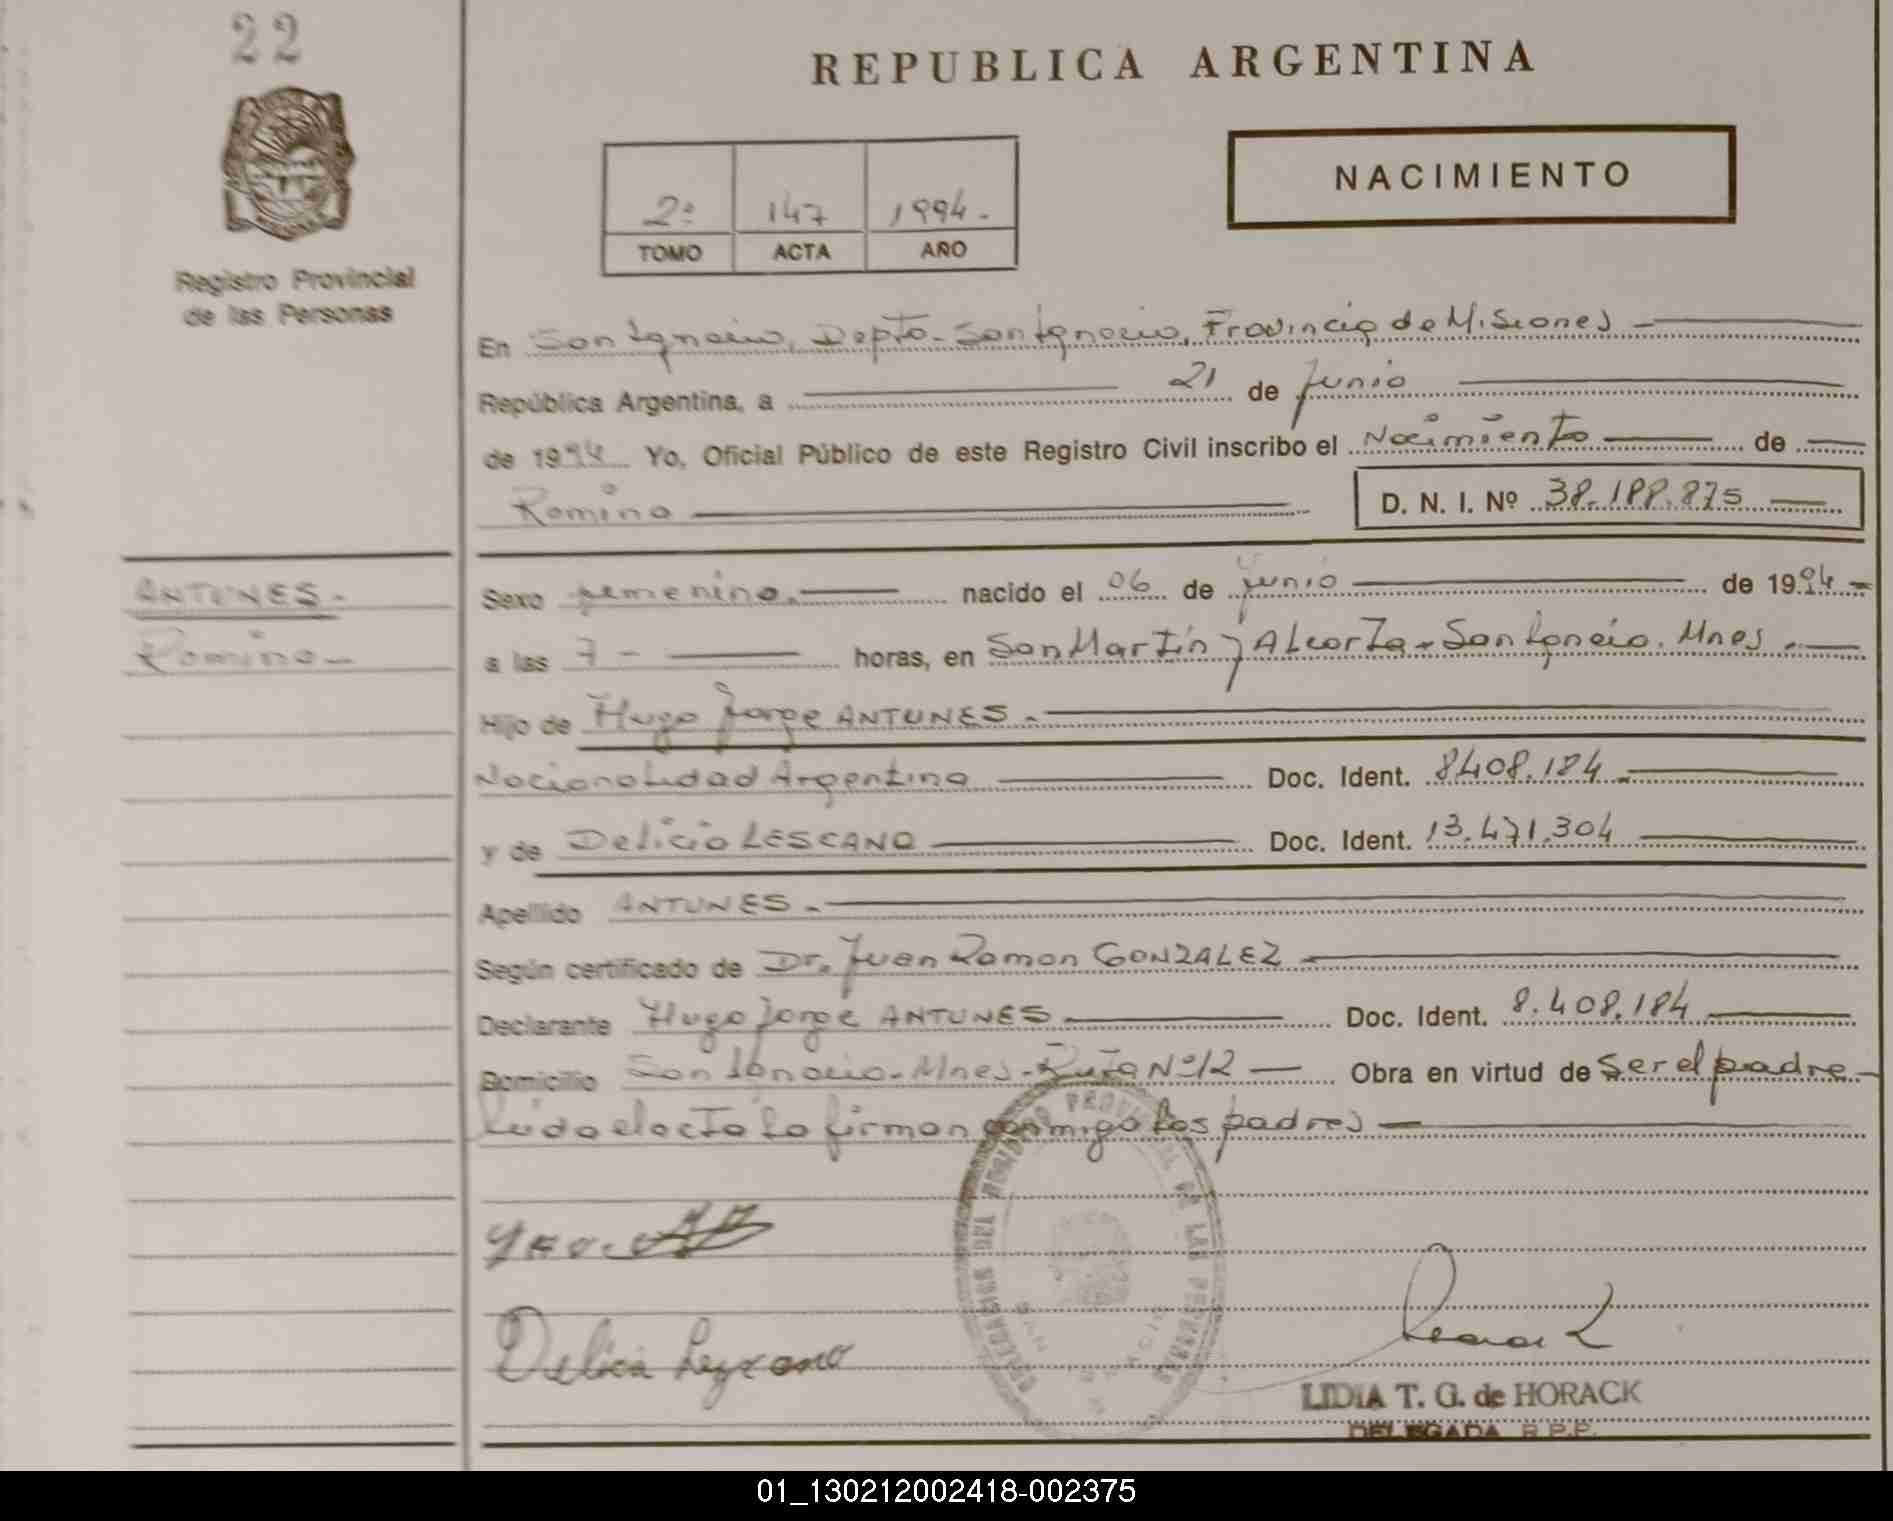 22
REPUBLICA ARGENTINA
NACIMIENTO
2º 147 1994.-
TOMO ACTA AÑO
Registro Provincial
de las Personas
En San Ignacio, Depto. San Ignacio, Provincia de Misiones
República Argentina, a 21 de junio
de 1994 Yo, Oficial Público de este Registro Civil inscribo el Nacimiento de
Romina D. N. I. Nº 38.188.875
ANTUNES.-
Romina-
Sexo femenino. nacido el 06 de junio de 1994-
a las 7 - horas, en San Martín y Alcorta - San Ignacio. Mnes.-
Hijo de Hugo Jorge ANTUNES.-
Nacionalidad Argentina Doc. Ident. 8408.184.
y de Delicia LESCANO Doc. Ident. 13.471.304
Apellido ANTUNES.-
Según certificado de Dr. Juan Ramon GONZALEZ
Declarante Hugo Jorge ANTUNES Doc. Ident. 8.408.184
Domicilio San Ignacio - Mnes - Ruta Nº 12 Obra en virtud de ser el padre
leída el acta la firman conmigo los padres
Delicia Lezcano
REGISTRO PROVINCIAL DE LAS PERSONAS
LIDIA T. G. de HORACK
DELEGADA R.P.P.
01_130212002418-002375